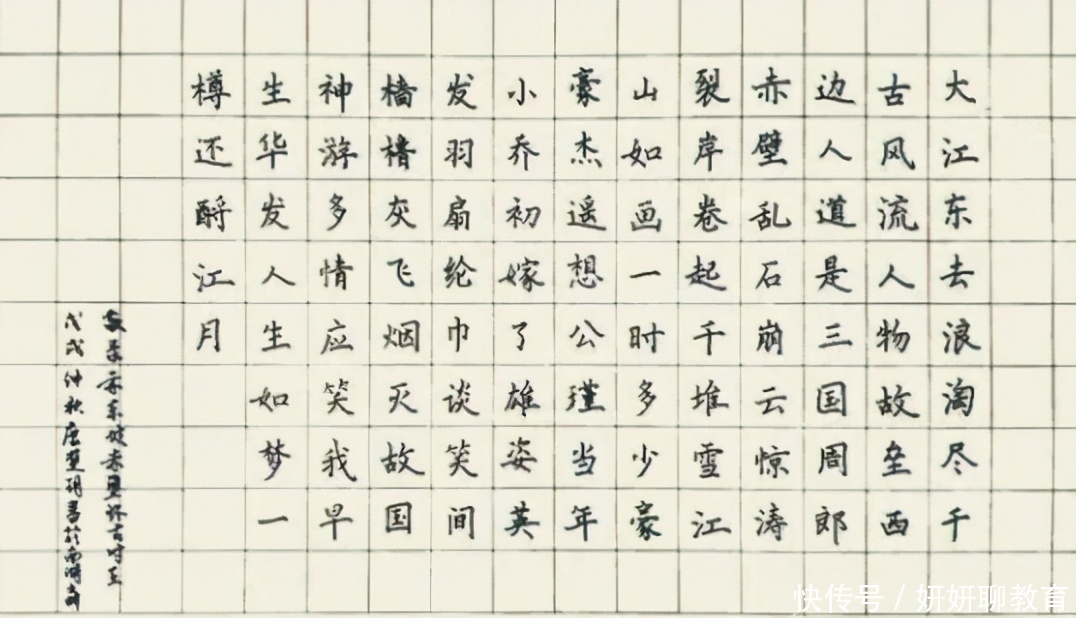 大江东去浪淘尽千
古风流人物故垒西
边人道是三国周郎
赤壁乱石崩云惊涛
裂岸卷起千堆雪江
山如画一时多少豪
豪杰遥想公瑾当年
小乔初嫁了雄姿英
发羽扇纶巾谈笑间
樯灰飞烟灭故国
神游多情应笑我早
生华发人生如梦一
樽还酹江月
坡赤壁怀古时
戊戌仲秋书于南湖
快传号 / 妍妍聊教育